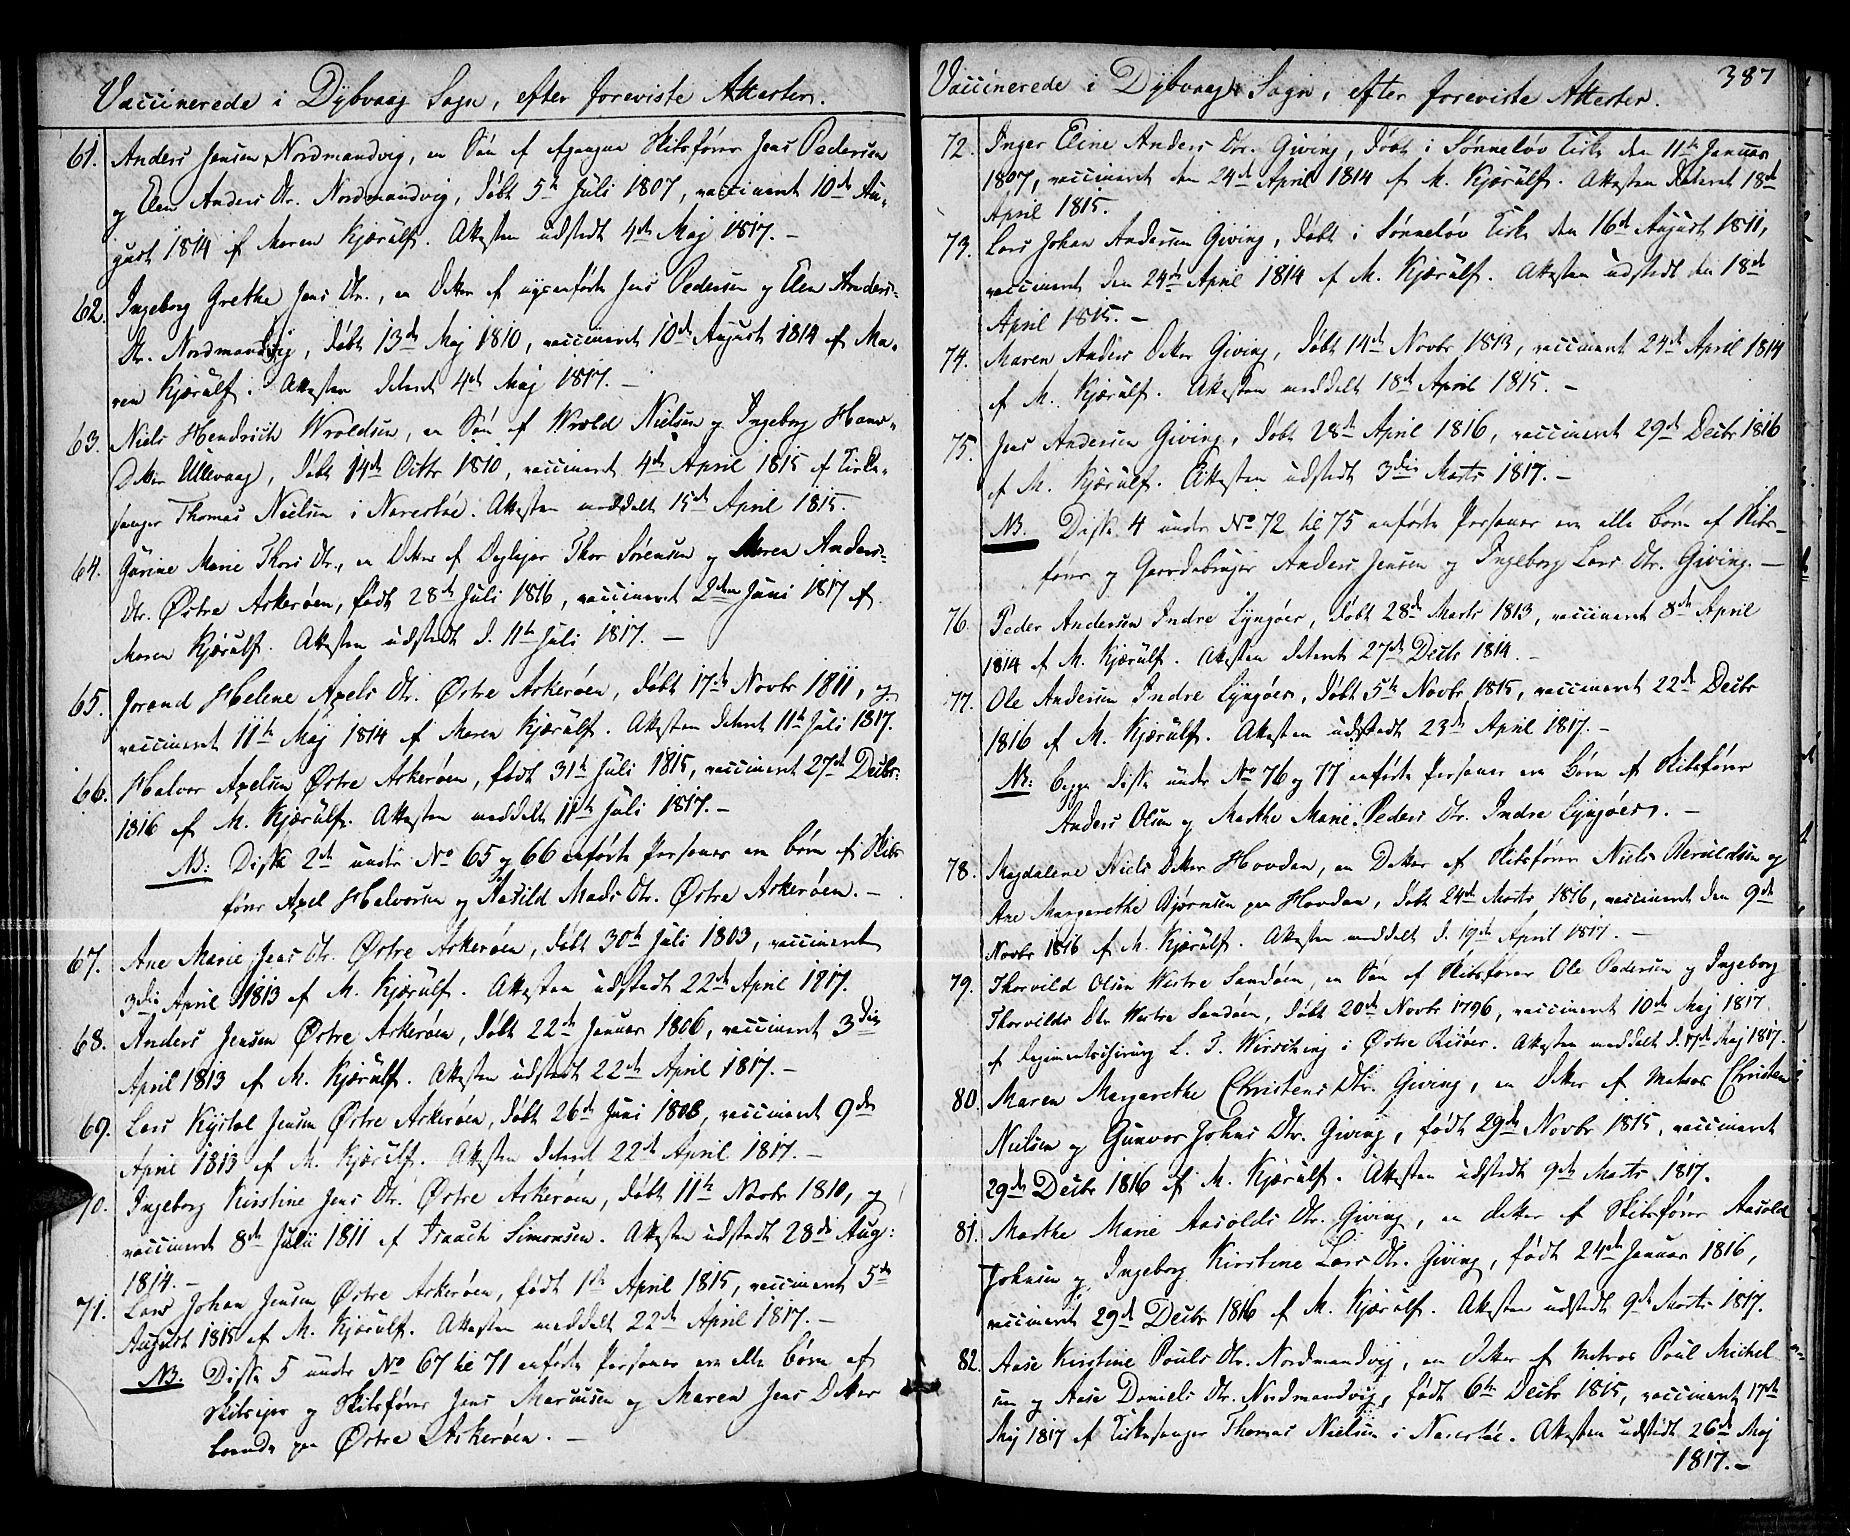 Vaccinerede i Dybvaag Sogn, efter foreviste Attester.
61. Anders Jensen Nordmandvig, en Søn af Skibsfører Jens Pedersen
og Elen Anders Dtr. Nordmandvig, døbt 5te Juli 1807, vaccineret 10de Au-
gust 1814 af Maren Kjærülf. Attesten udstedt 4de Maj 1817. –
62. Ingeborg Grethe Jens Dtr., en Datter af Jens Pedersen og Elen Anders-
Dtr. Nordmandvig, døbt 13de Maj 1810, vaccineret 10de August 1814 af Ma-
ren Kjærülf. Attesten dateret 4de Maj 1817. –
63. Niels Hendrich Wroldsen, en Søn af Wrold Nielsen og Ingeborg Hans-
Datter Ullevaag, døbt 14de Octbr 1810, vaccineret 4de April 1815 af Kirke-
sanger Thomas Nielsen i Narestøe. Attesten meddelt 15de April 1815.
64. Gurine Marie Thors Dtr., en Datter af Thor Sørensen og Maren Anders-
Dtr. Østre Askerøen, født 28de Juli 1816, vaccineret 2den Juni 1817 af
Maren Kjærülf. Attesten udstedt d. 11te Juli 1817. –
65. Jorand Helene Axels Dtr. Østre Askerøen, døbt 17de Novbr 1811, og
vaccineret 11te Maj 1814 af Maren Kjærülf. Attesten dateret 11te Juli 1817.
66. Halvor Axelsen Østre Askerøen, født 31te Juli 1815, vaccineret 27de Decbr:
1816 af M. Kjærülf. Attesten meddelt 11te Juli 1817. –
NB: Disse 2de under No 65 og 66 anførte Personer ere børn af Skibs
fører Axel Halvorsen og Aasild Mads Dtr. Østre Askerøen. –
67. Ane Marie Jens Dtr. Østre Askerøen, døbt 30te Juli 1803, vaccineret
3die April 1813 af M. Kjærülf. Attesten udstedt 22de April 1817.
68. Anders Jensen Østre Askerøen, døbt 22de Januar 1806, vaccineret 3die
April 1813 af M. Kjærülf. Attesten udstedt 22de April 1817. –
69. Lars Kystol Jensen Østre Askerøen, døbt 26de Juni 1808, vaccineret 9de
April 1813 af M. Kjærülf. Attesten dateret 22de April 1817. –
70. Ingeborg Kirstine Jens Dtr. Østre Askerøen, døbt 11te Novbr 1810, og
vaccineret 8de Julii 1811 af Isaach Simonsen. Attesten udstedt 28de Aug:
1814. –
71. Lars Johan Jensen Østre Askerøen, født 1ste April 1815, vaccineret 5te
August 1815 af M. Kjærülf. Attesten meddelt 22de April 1817. –
NB. Disse 5 under No 67 til 71 anførte Personer ere alle børn af
Skibsejer og Skibsfører Jens Marcusen og Maren Jens Datter
boende paa Østre Askerøen. –
Vaccinerede i Dybvaag Sogn, efter foreviste Attester. 387
72. Inger Eline Anders Dtr. Giving, døbt i Sønneløv Kirke den 11te Januar
1807, vaccineret den 24de April 1814 af M. Kjærülf. Attesten dateret 18de
April 1815.
73. Lars Johan Andersen Giving, døbt i Sønneløv Kirke den 16de August 1811,
vaccineret den 24de April 1814 af M. Kjærülf. Attesten udstedt den 18de
April 1815. –
74. Maren Anders Datter Giving, døbt 14de Novbr 1813, vaccineret 24de April 1814
af M. Kjærülf. Attesten meddelt 18de April 1815. –
75. Jens Andersen Giving, døbt 28de April 1816, vaccineret 29de Decbr 1816
af M. Kjærülf. Attesten udstedt 3die Marts 1817. –
NB. Disse 4 under No 72 til 75 anførte Personer ere alle børn af Skibs-
fører og Gaardebruger Anders Jensen og Ingeborg Lars Dtr. Giving. –
76. Peder Andersen Indre Lyngøer, døbt 28de Marts 1813, vaccineret 8de April
1814 af M. Kjærülf. Attesten dateret 27de Decbr 1814. –
77. Ole Andersen Indre Lyngøer, døbt 5te Novbr 1815, vaccineret 22de Decbr
1816 af M. Kjærülf. Attesten udstedt 23de April 1817. –
NB: begge disse under No 76 og 77 anførte Personer ere Børn af Skibsfører
Anders Olsen og Marthe Marie Peders Dtr. Indre Lyngøer. –
78. Magdalene Niels Datter Hovdan, en Datter af Skibsfører Niels Beruldsen og
Ane Margarethe Bjørnsen paa Hovdan, døbt 24de Marts 1816, vaccineret den 9de
Novbr 1816 af M. Kjærülf. Attesten meddelt d. 19de April 1817. –
79. Thorvild Olsen Westre Sandøen, en Søn af Skibsfører Ole Pedersen og Ingeborg
Thorvilds Dtr Westre Sandøen, døbt 20de Novbr 1796, vaccineret 10de Maj 1817
af Regimentschirurg L. T. Wirsching i Østre Risøer. Attesten meddelt d. 17de Maj 1817.
80. Maren Margarethe Christens Dtr. Giving, en Datter af Matros Christen
Nielsen og Gunvor Johns Dtr. Giving, født 29de Novbr 1815, vaccineret
29de Decbr 1816 af M. Kjærülf. Attesten udstedt 9de Marts 1817.
81. Marthe Marie Aasolds Dtr. Giving, en datter af Skibsfører Aasold
Johnsen og Ingeborg Kirstine Lars Dtr. Giving, født 24de Januar 1816,
vaccineret 29de Decbr 1816 af M. Kjærülf. Attesten udstedt 9de Marts 1817.
82. Aase Kirstine Pouls Dtr. Nordmandvig, en Datter af Matros Poul Michel-
sen og Aase Daniels Dtr. Nordmandvig, født 6te Decbr 1815, vaccineret 17de
Maj 1817 af Kirkesanger Thomas Nielsen i Narestøe. Attesten udstedt 26de Maj
1817. –